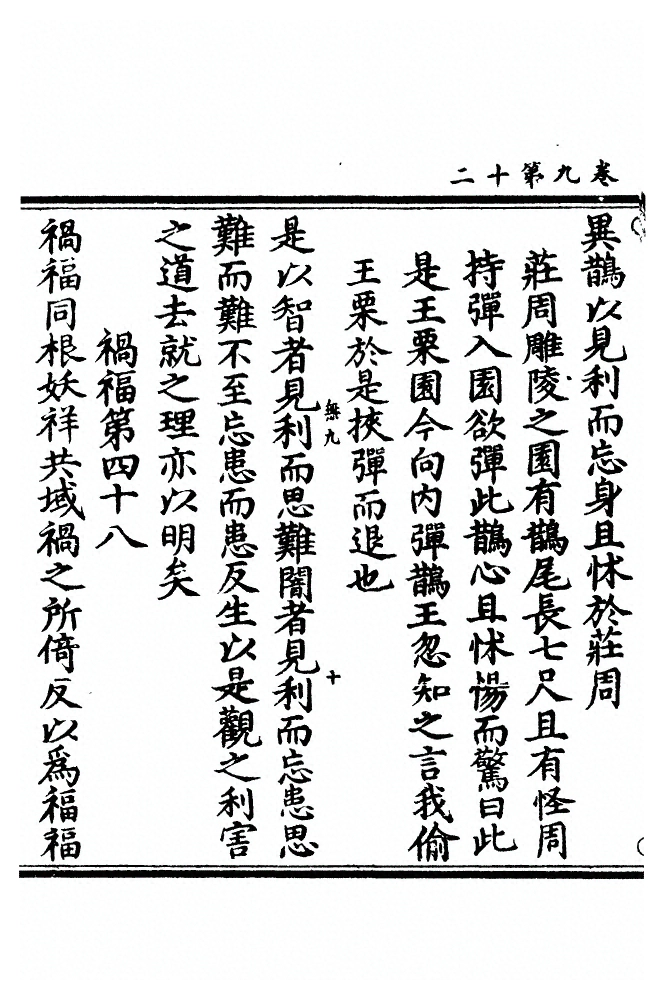 卷九第十二
異鵲以見利而忘身且怵於莊周
莊周雕陵之園有鵲尾長七尺且有怪周
持彈入園欲彈此鵲心且怵惕而驚曰此
是王栗園今向内彈鵲王忽知之言我偷
王栗於是挾彈而退也
是以智者見利而思難闇者見利而忘患思
無九
十
難而難不至忘患而患反生以是觀之利害
之道去就之理亦以明矣
禍福第四十八
禍福同根妖祥共域禍之所倚反以爲福福